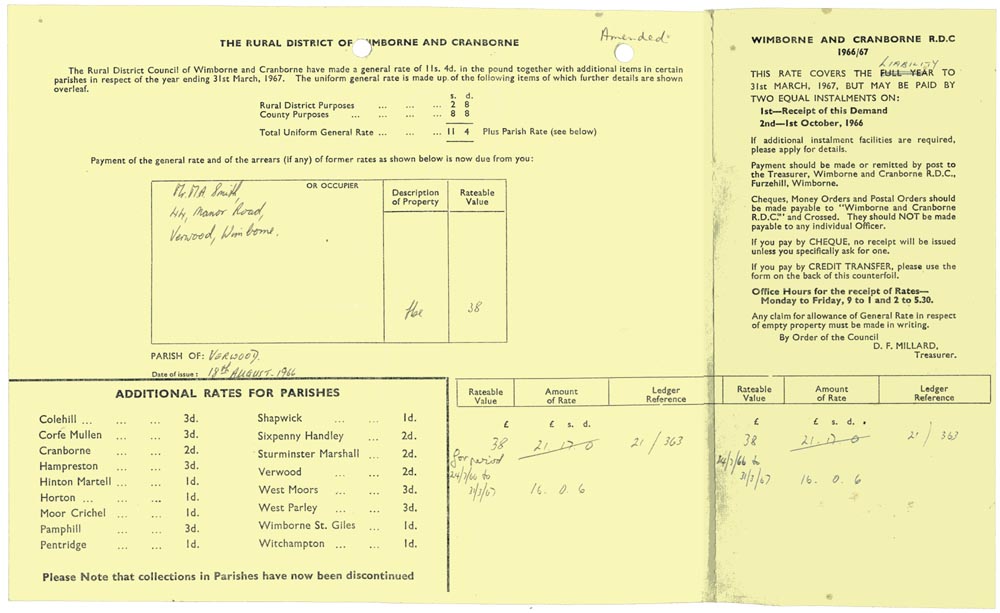 Amended
THE RURAL DISTRICT OF WIMBORNE AND CRANBORNE
The Rural District Council of Wimborne and Cranborne have made a general rate of 11s. 4d. in the pound together with additional items in certain
parishes in respect of the year ending 31st March, 1967. The uniform general rate is made up of the following items of which further details are shown
overleaf.
s. d.
Rural District Purposes ... ... ... 2 8
County Purposes ... ... ... ... 8 8
Total Uniform General Rate ... ... ... 11 4 Plus Parish Rate (see below)
Payment of the general rate and of the arrears (if any) of former rates as shown below is now due from you:
OR OCCUPIER
Description of Property
Rateable Value
Mr. M A Smith,
44, Manor Road,
Verwood, Wimborne.
Hse 38
PARISH OF: VERWOOD.
Date of issue: 18th AUGUST. 1966
ADDITIONAL RATES FOR PARISHES
Colehill ... ... ... 3d.
Corfe Mullen ... ... 3d.
Cranborne ... ... 2d.
Hampreston ... ... 3d.
Hinton Martell ... ... 1d.
Horton ... ... ... 1d.
Moor Crichel ... ... 1d.
Pamphill ... ... 3d.
Pentridge ... ... 1d.
Shapwick ... ... 1d.
Sixpenny Handley ... 2d.
Sturminster Marshall ... 2d.
Verwood ... ... 2d.
West Moors ... ... 3d.
West Parley ... ... 3d.
Wimborne St. Giles ... 1d.
Witchampton ... ... 1d.
Please Note that collections in Parishes have now been discontinued
Rateable Value
Amount of Rate
Ledger Reference
£ £ s. d.
38 21. 17 0 21 / 363
for period
24/3/66 to
31/3/67 16. 0. 6
WIMBORNE AND CRANBORNE R.D.C
1966/67
LIABILITY
THIS RATE COVERS THE FULL YEAR TO
31ST MARCH, 1967, BUT MAY BE PAID BY
TWO EQUAL INSTALMENTS ON:
1st—Receipt of this Demand
2nd—1st October, 1966
If additional instalment facilities are required,
please apply for details.
Payment should be made or remitted by post to
the Treasurer, Wimborne and Cranborne R.D.C.,
Furzehill, Wimborne.
Cheques, Money Orders and Postal Orders should
be made payable to "Wimborne and Cranborne
R.D.C." and Crossed. They should NOT be made
payable to any individual Officer.
If you pay by CHEQUE, no receipt will be issued
unless you specifically ask for one.
If you pay by CREDIT TRANSFER, please use the
form on the back of this counterfoil.
Office Hours for the receipt of Rates—
Monday to Friday, 9 to 1 and 2 to 5.30.
Any claim for allowance of General Rate in respect
of empty property must be made in writing.
By Order of the Council
D. F. MILLARD,
Treasurer.
Rateable Value
Amount of Rate
Ledger Reference
£ £ s. d.
38 21. 17 0 21 / 363
24/3/66 to
31/3/67 16. 0. 6